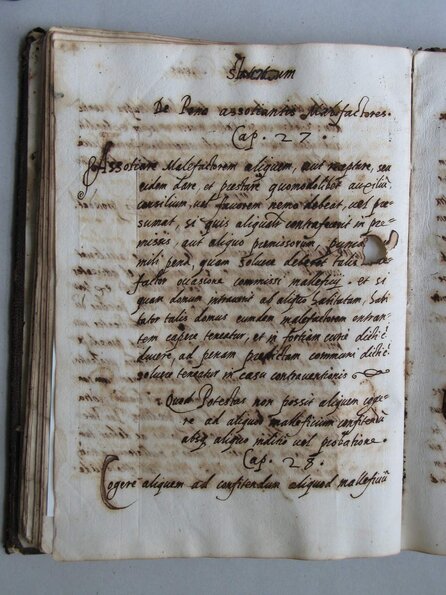 De Pena assotiantis Malefactores.
Cap. 27.
Assotiare Malefactorem aliquem, aut receptare, seu
eidem dare, et prestare quomodolibet auxiliũ
consilium, vel favorem nemo debeat, vel pre-
sumat, si quis aliquale contrafecerit in pre-
missis, aut aliquo premissorum, puni
mili pena, quam solvere deberet talis
factor occasione commissi malleficij. et si
quam domum intraverit ab aliquo habitatam, habi-
tator talis domus eundem malefactorem intran-
tem capere teneatur, et in fortiam curie dicti
ducere, ad penam predictam communi dicti
solvere teneatur in casu contraventionis
Quod Potestas non possit aliquem coge-
re ad aliquod malleficium confitendũ
absq aliquo inditio vel probatione.
Cap. 28.
Cogere aliquem ad confitendum aliquod malleficiũ